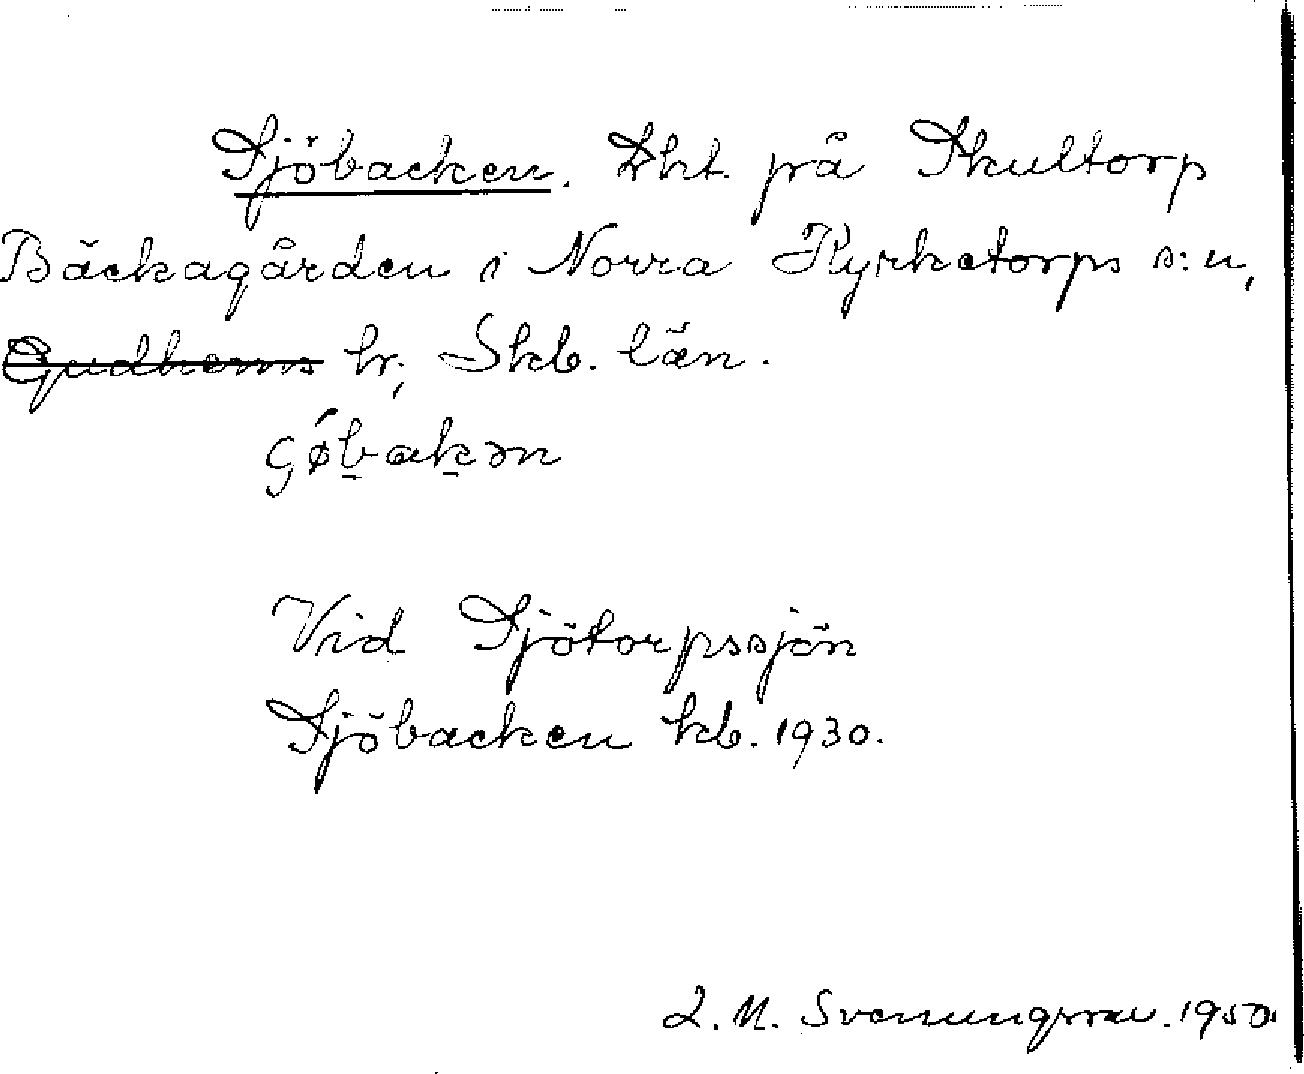 Sjöbacken. Lht. på Skultorp
Bäckagården i Norra Kyrketorps s:n,
Gudhems hr, Skb. län.
çǿbakən
Vid Sjötorpssjön
Sjöbacken kb. 1930.
L. M. Svenungsson. 1950.